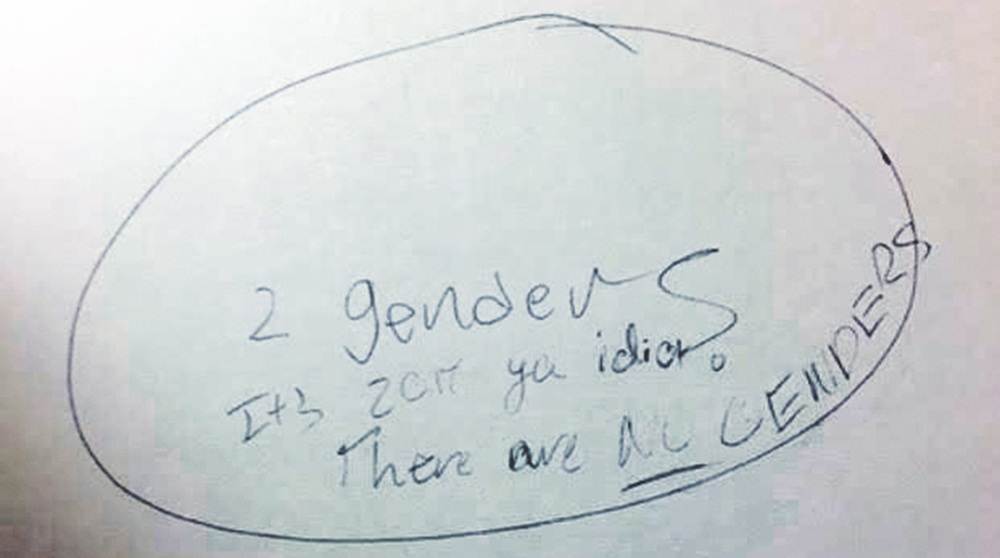 2 genders
It's 2017 ya idiot.
There are NO GENDERS